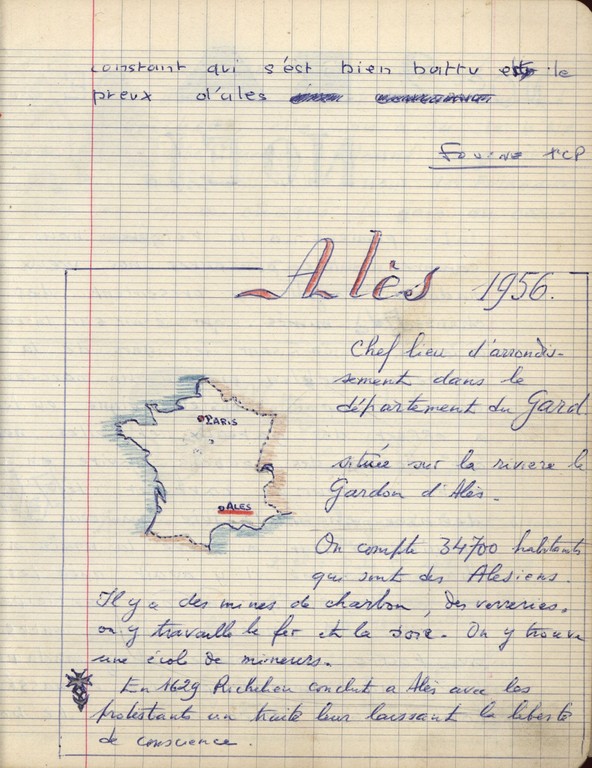 constant qui s'est bien battu le
preux d'ales
Fouine
Alès 1956.
Chef lieu d'arrondis-
sement dans le
département du Gard
située sur la riviere le
Gardon d'Alès.
PARIS
ALES
On compte 34700 habitants
qui sont des Alesiens.
Il y a des mines de charbon, des verreries,
on y travaille le fer et la soie. On y trouve
une école de mineurs.
En 1629 Richelieu conclut a Alès avec les
protestants un traité leur laissant la liberté
de conscience.